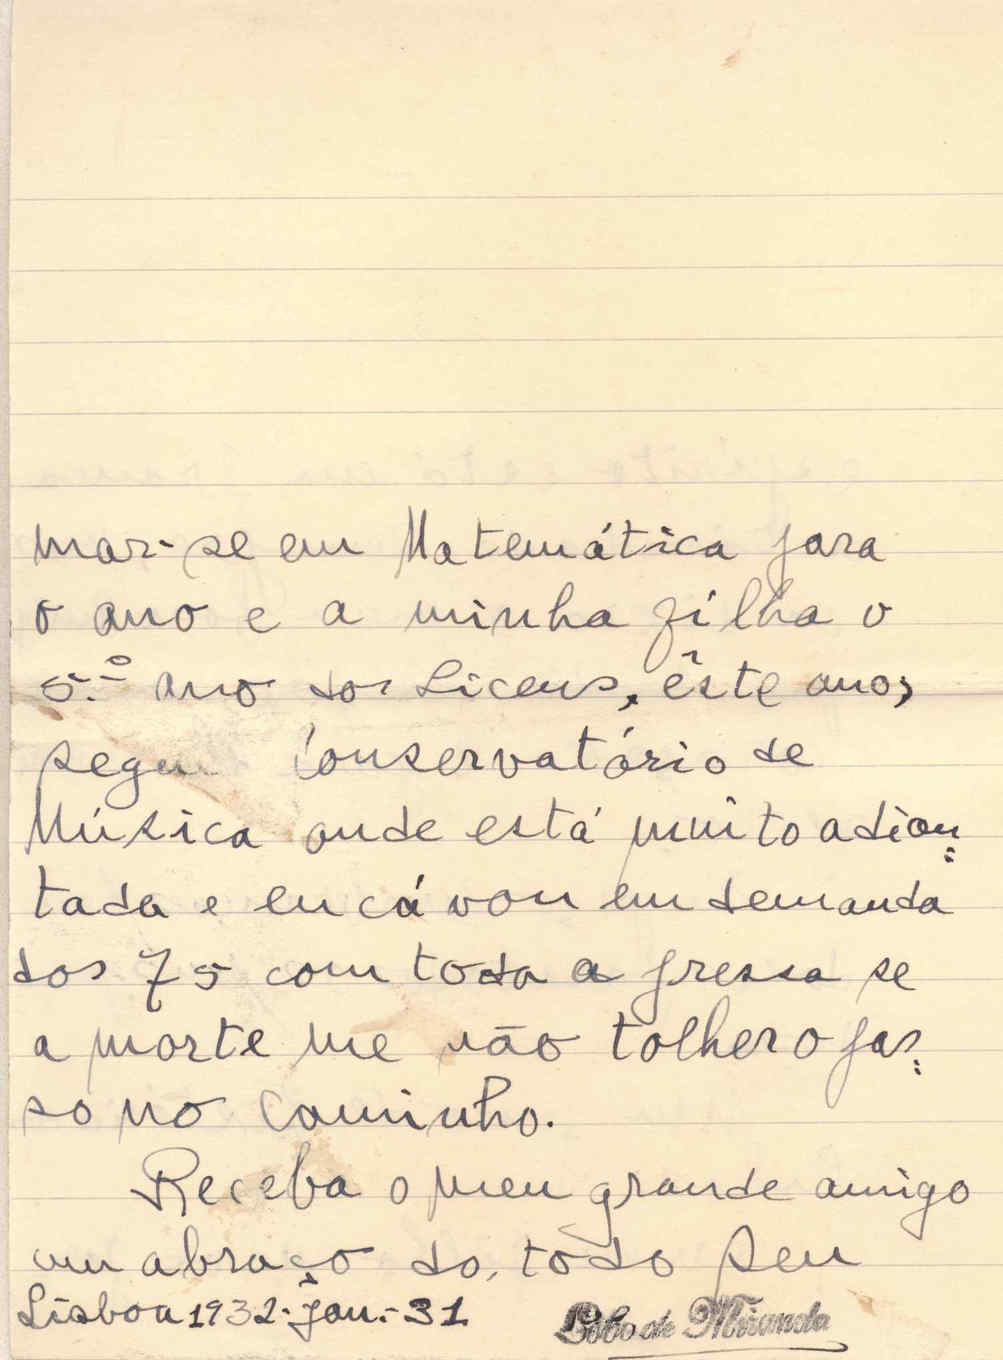 mar-se em Matemática para
o ano e a minha filha o
5.º ano dos Liceus, êste ano,
segue Conservatório de
Música onde está muito adian:
tada e eu cá vou em demanda
dos 75 com toda a pressa se
a morte me não tolher o pas:
so no caminho.
Receba o meu grande amigo
um abraço do, todo seu
Lisboa 1932-jan.-31
Lobo de Miranda